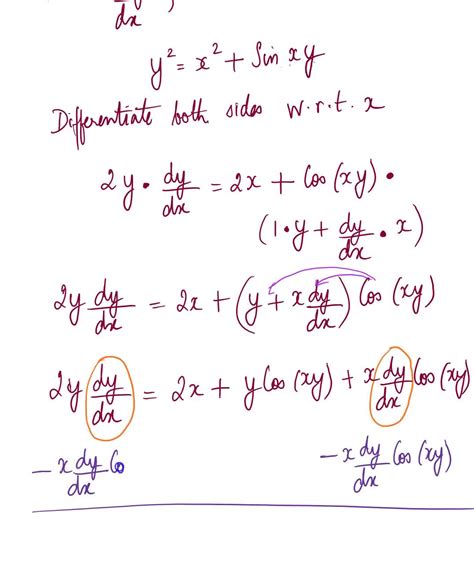 dy/dx )
y² = x² + Sin xy
Differentiate both sides w.r.t. x
2y · dy/dx = 2x + Cos (xy) ·
(1·y + dy/dx · x)
2y dy/dx = 2x + (y + x dy/dx) Cos (xy)
2y dy/dx = 2x + y Cos (xy) + x dy/dx Cos (xy)
– x dy/dx Co – x dy/dx Cos (xy)